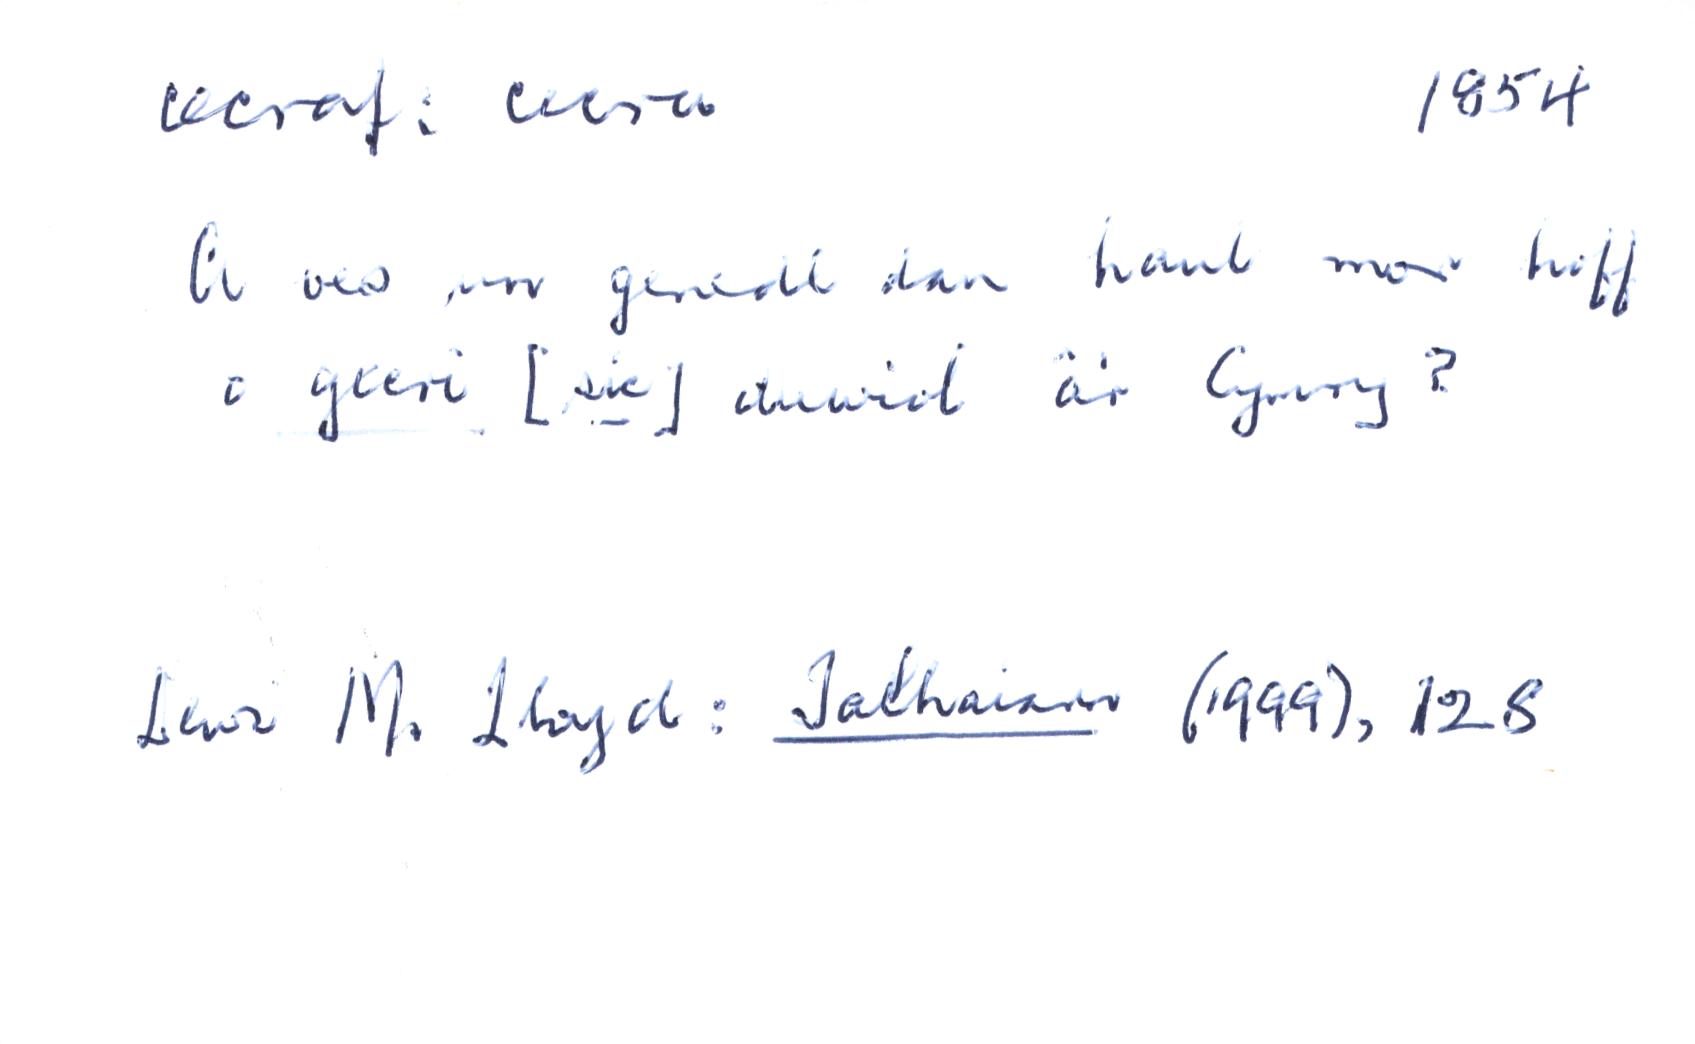 cecraf: cecru 1854
A oes un genedl dan haul mor hoff
o gecri [sic] duwiol â'r Cymry?
Dewi M. Lloyd: Talhaiarn (1999), 128